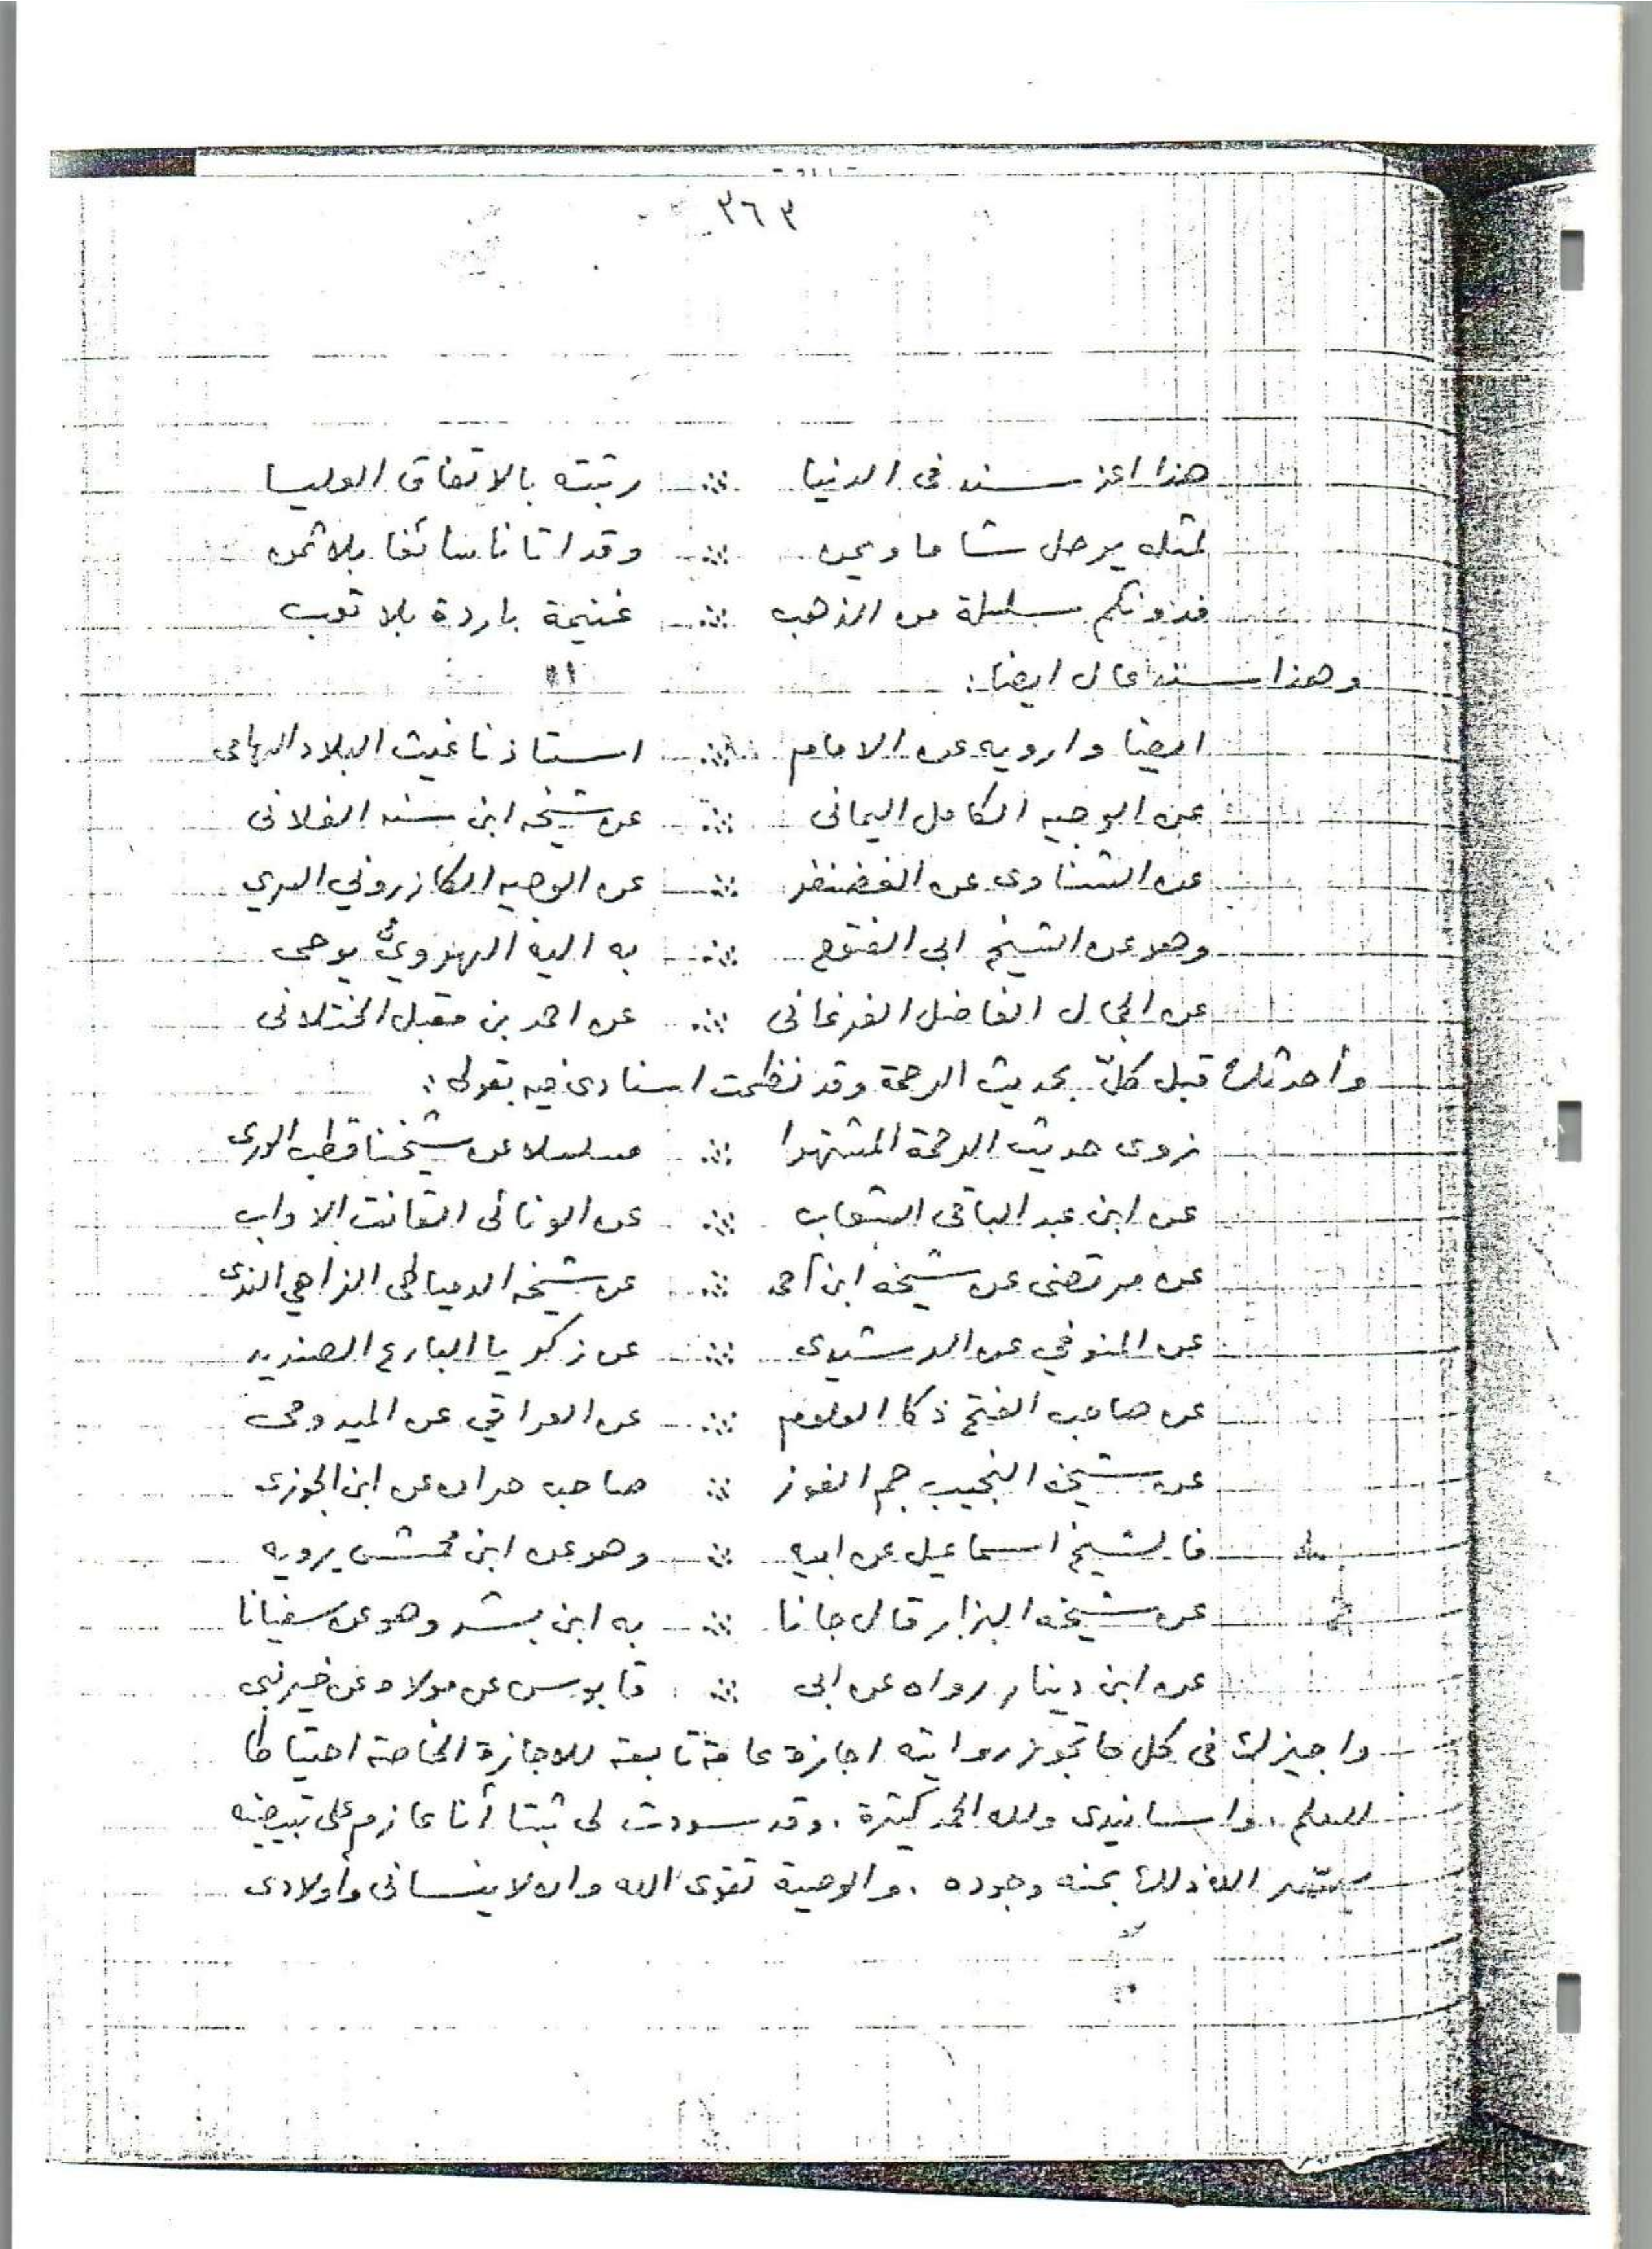 ٣٦٣
هذا اعز سند فى الدنيا ∴ رتبته بالاتفاق العليا
لمثله يرحل شاما ويمن ∴ وقد اتانا سائغا بلا ثمن
فدونكم سلسلة من الذهب ∴ غنيمة باردة بلا تعب
وهذا سند عال ايضا:
ايضا وارويه عن الامام ∴ استاذنا غيث البلاد الهامى
عن الوجيه الكامل اليمانى ∴ عن شيخه ابن سنه الفلانى
عن الشناوى عن الغضنفر ∴ عن الوجيه الكازروني السري
وهو عن الشيخ ابى الفتوح ∴ به اليه الهرويّ يوحى
عن الجمال الفاضل الفرغانى ∴ عن احمد بن مقبل الختلانى
وأحدثك قبل كلّ بحديث الرحمة وقد نظمت اسنادى فيه بقولى:
نروى حديث الرحمة المشتهرا ∴ مسلسلا عن شيخنا قطب الورى
عن ابن عبد الباقى الشعاب ∴ عن الونائى القانت الاواب
عن مرتضى عن شيخه ابن أحمد ∴ عن شيخه الدمياطى الزاهي الندى
عن المنوفي عن الرشيدى ∴ عن زكريا البارع الصنديد
عن صاحب الفتح ذكا العلوم ∴ عن العراقي عن الميدومى
عن شيخه النجيب جم الفوز ∴ صاحب حران عن ابن الجوزى
فالشيخ اسماعيل عن ابيه ∴ وهو عن ابن محمش يرويه
عن شيخه البزار قال جانا ∴ به ابن بشر وهو عن سفيانا
عن ابن دينار رواه عن ابى ∴ قابوس عن مولاه عن خير نبى
واجيزك فى كل ما تجوز روايته اجازة عامة تابعة للاجازة الخاصة احتياطا
للعلم. واسانيدى ولله الحمد كثيرة. وقد سودت لى ثبتا أنا عازم على تبييضه
يسّر الله ذلك بمنه وجوده. والوصية تقوى الله وان لا ينسانى وأولادى